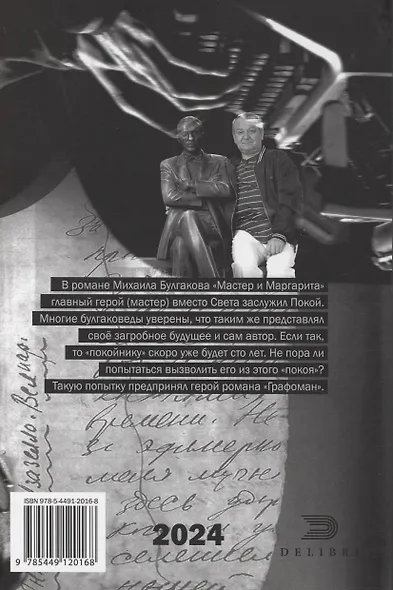 В романе Михаила Булгакова «Мастер и Маргарита»
главный герой (мастер) вместо Света заслужил Покой.
Многие булгаковеды уверены, что таким же представлял
своё загробное будущее и сам автор. Если так,
то «покойнику» скоро уже будет сто лет. Не пора ли
попытаться вызволить его из этого «покоя»?
Такую попытку предпринял герой романа «Графоман».
времени. Не
здесь
ISBN 978-5-4491-2016-8
9 785449 120168
2024
DELIBRI